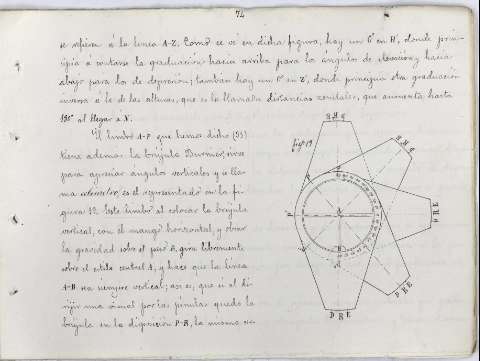 74
se refiere á la linea A-Z. Como se vé en dicha figura, hay un 0° en H', donde prin-
cipia á contarse la graduacion hacia arriba para los ángulos de elevacion y hacia
abajo para los de depresion; tambien hay un 0° en Z', donde principia otra graduacion
inversa á la de las alturas, que es la llamada distancias zenitales, que aumenta hasta
180° al llegar á N.
El limbo A-P que hemos dicho (93)
tiene ademas la brújula Burnier, sirve
para apreciar ángulos verticales y se lla-
ma es el representado en la fi-
gura 19. Este limbo al colocar la brújula
vertical, con el mango horizontal, y obrar
la gravedad sobre el peso gira libremente
sobre el estilo central A, y hace que la linea
A- sea siempre vertical; asi es, que si al di-
rijir una visual por las pínulas queda la
brújula en la disposicion P-R, la misma en
figª 19
P
P
D R E
D R E
D R E